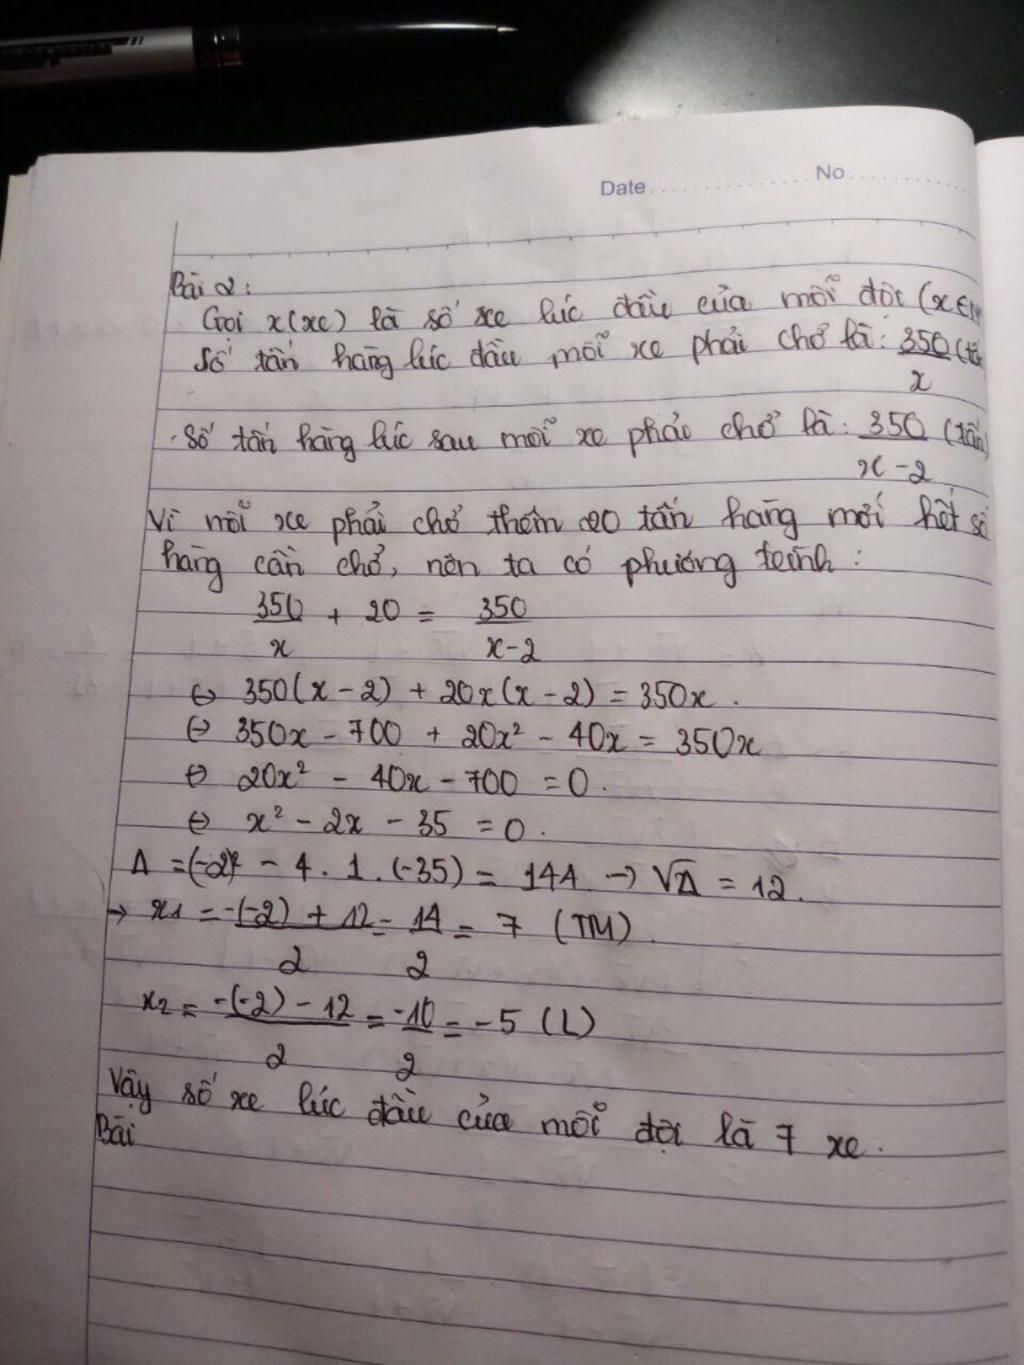 Date No
Bài 2:
Gọi x(xe) là số xe lúc đầu của mỗi đội (x∈
Số tấn hàng lúc đầu mỗi xe phải chở là: 350
x
Số tấn hàng lúc sau mỗi xe phải chở là: 350 (tấn)
x-2
Vì mỗi xe phải chở thêm 20 tấn hàng mới hết số
hàng cần chở, nên ta có phương trình:
350/x + 20 = 350/x-2
⇔ 350(x-2) + 20x(x-2) = 350x.
⇔ 350x - 700 + 20x² - 40x = 350x
⇔ 20x² - 40x - 700 = 0.
⇔ x² - 2x - 35 = 0.
Δ = (-2)² - 4.1.(-35) = 144 → √Δ = 12.
→ x1 = -(-2) + 12/2 = 14/2 = 7 (TM).
x2 = -(-2) - 12/2 = -10/2 = -5 (L)
Vậy số xe lúc đầu của mỗi đội là 7 xe.
Bài